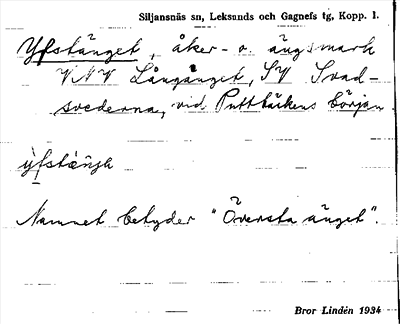 Siljansnäs sn, Leksands och Gagnefs tg, Kopp. l.
Yfstänget, åker- o. ängsmark
VNV Långänget, SV Svad-
svederna, vid Puttbäckens början.
yfstäŋjɘ
Namnet betyder "Översta änget".
Bror Lindén 1934